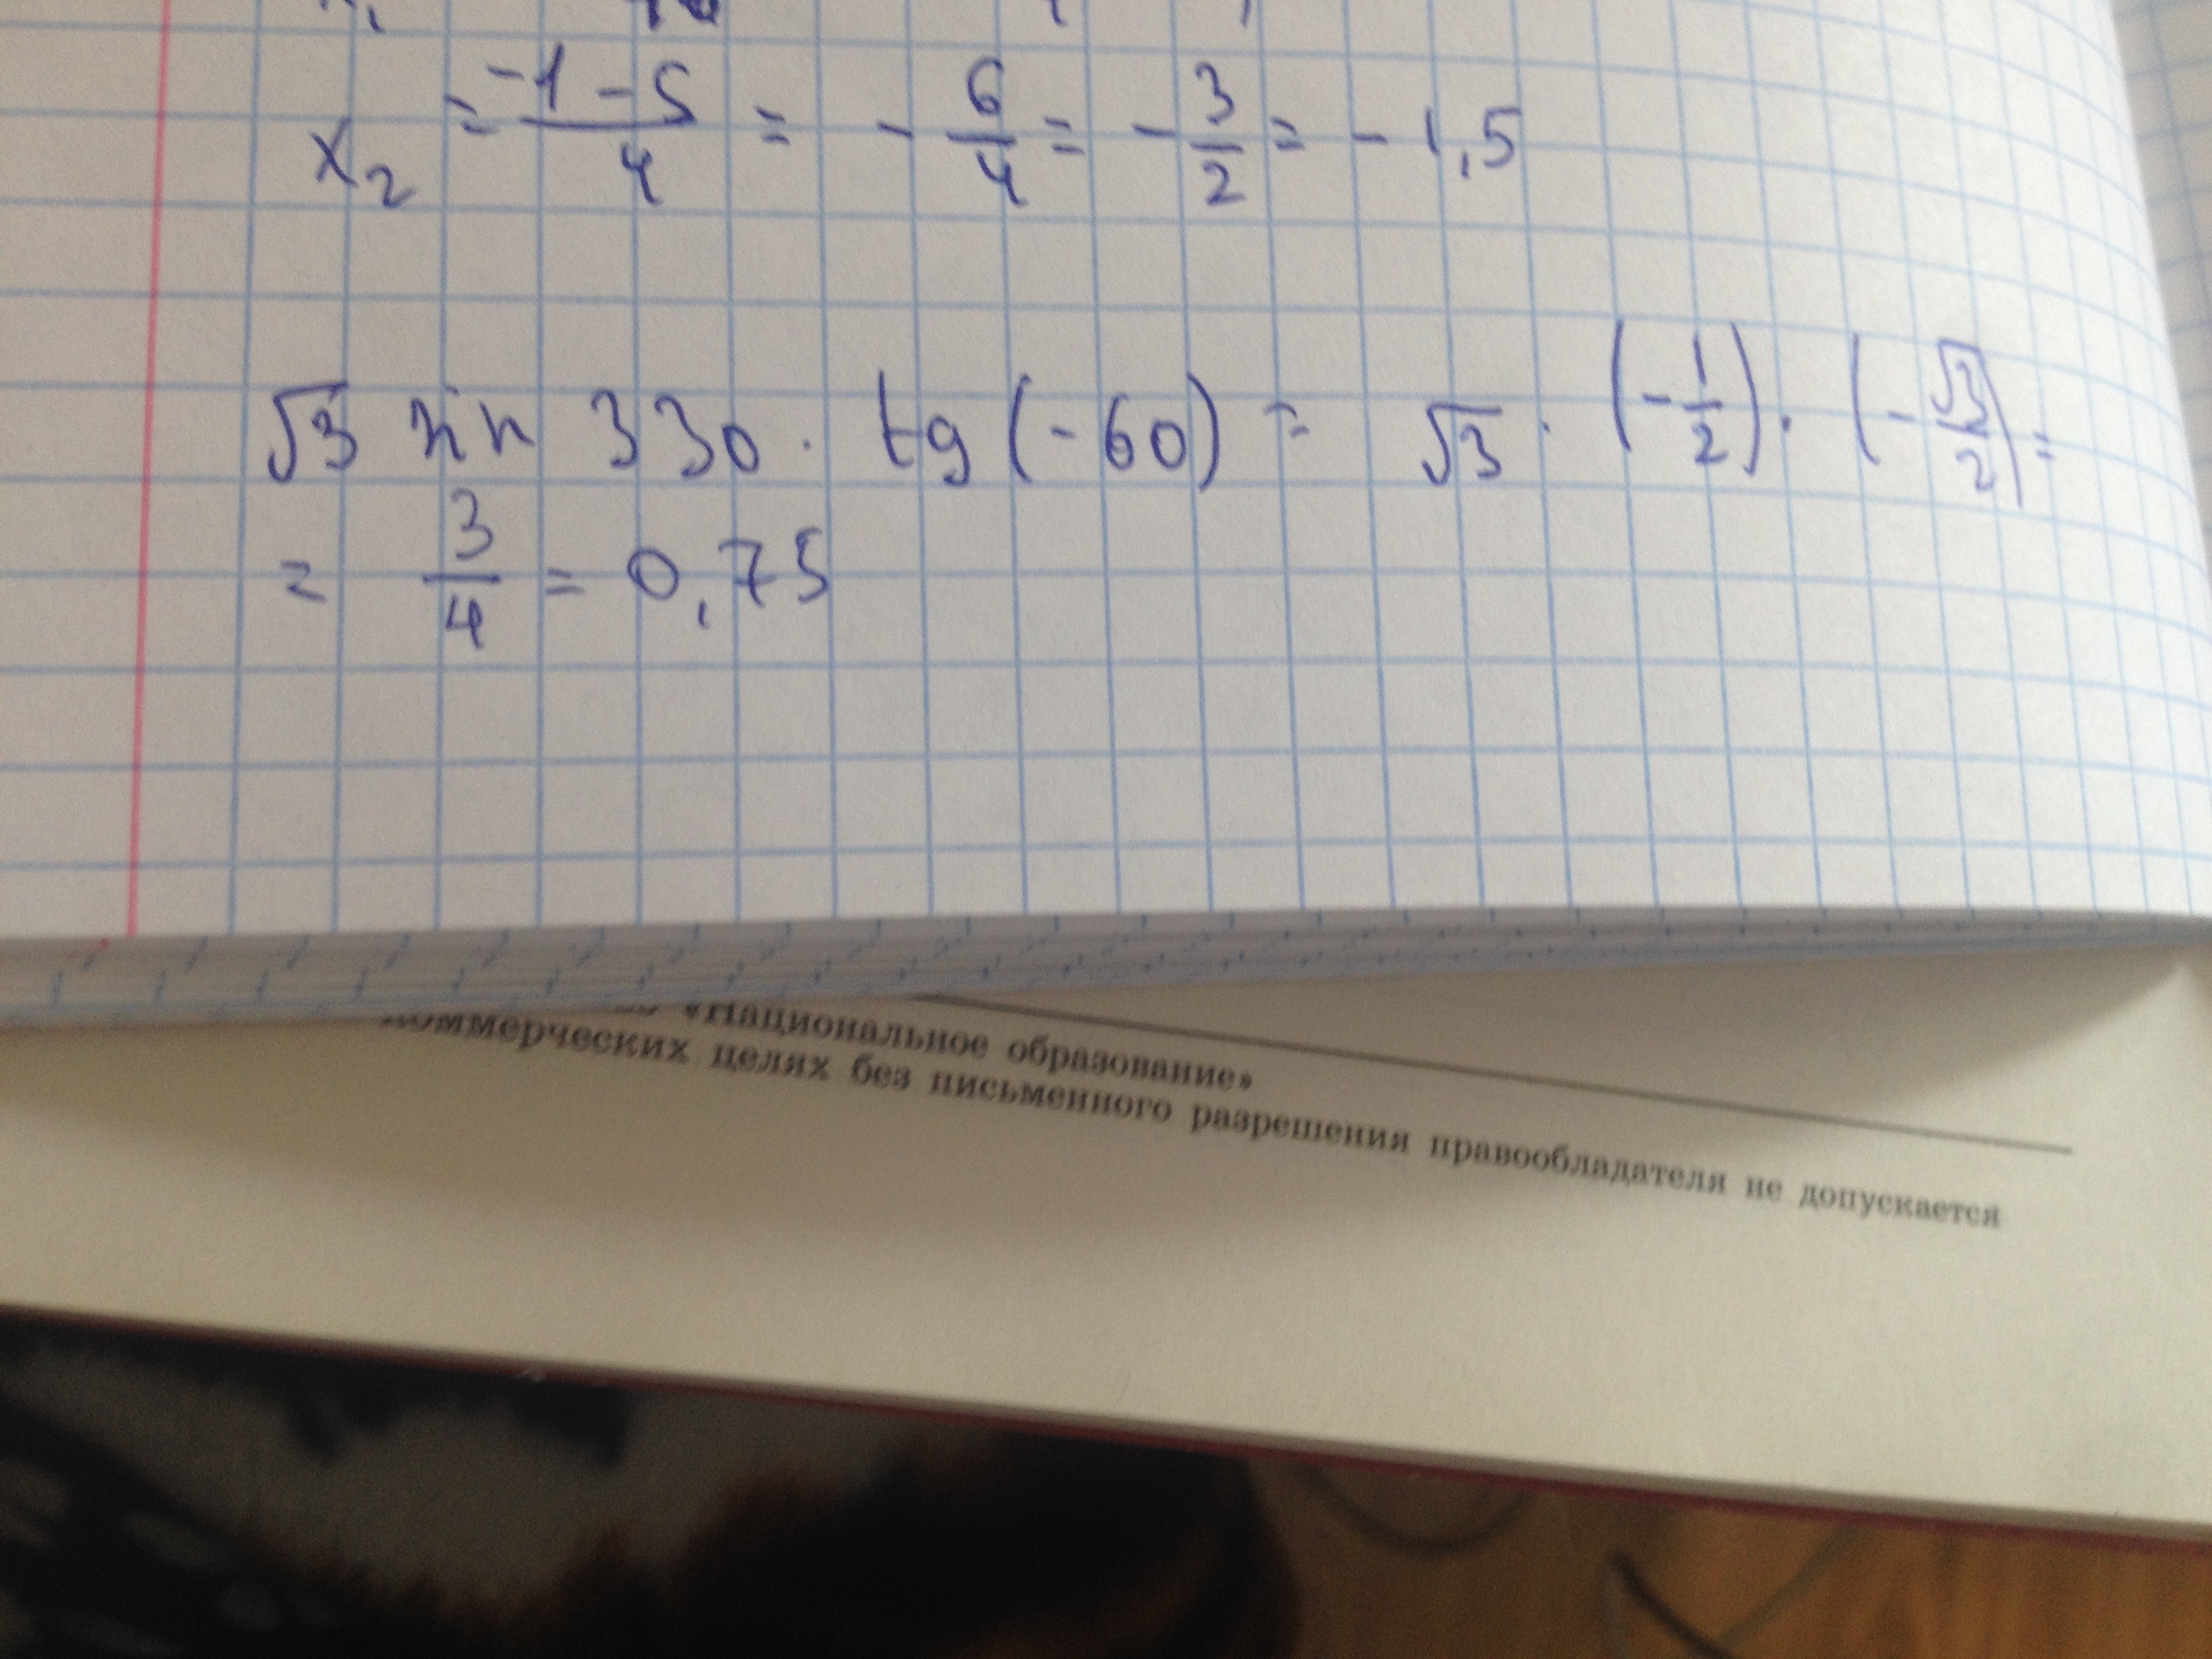 x₂ = (-1-5)/4 = -6/4 = -3/2 = -1,5
√3 sin 330 · tg (-60) = √3 · (-1/2) · (-√3/2) =
= 3/4 = 0,75
«Национальное образование»
коммерческих целях без письменного разрешения правообладателя не допускается